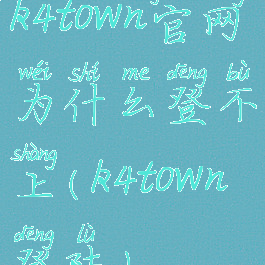 k4town官网
wéi shí me dēng bù
为什么登不
shàng
上(k4town
dēng lù
登陆)